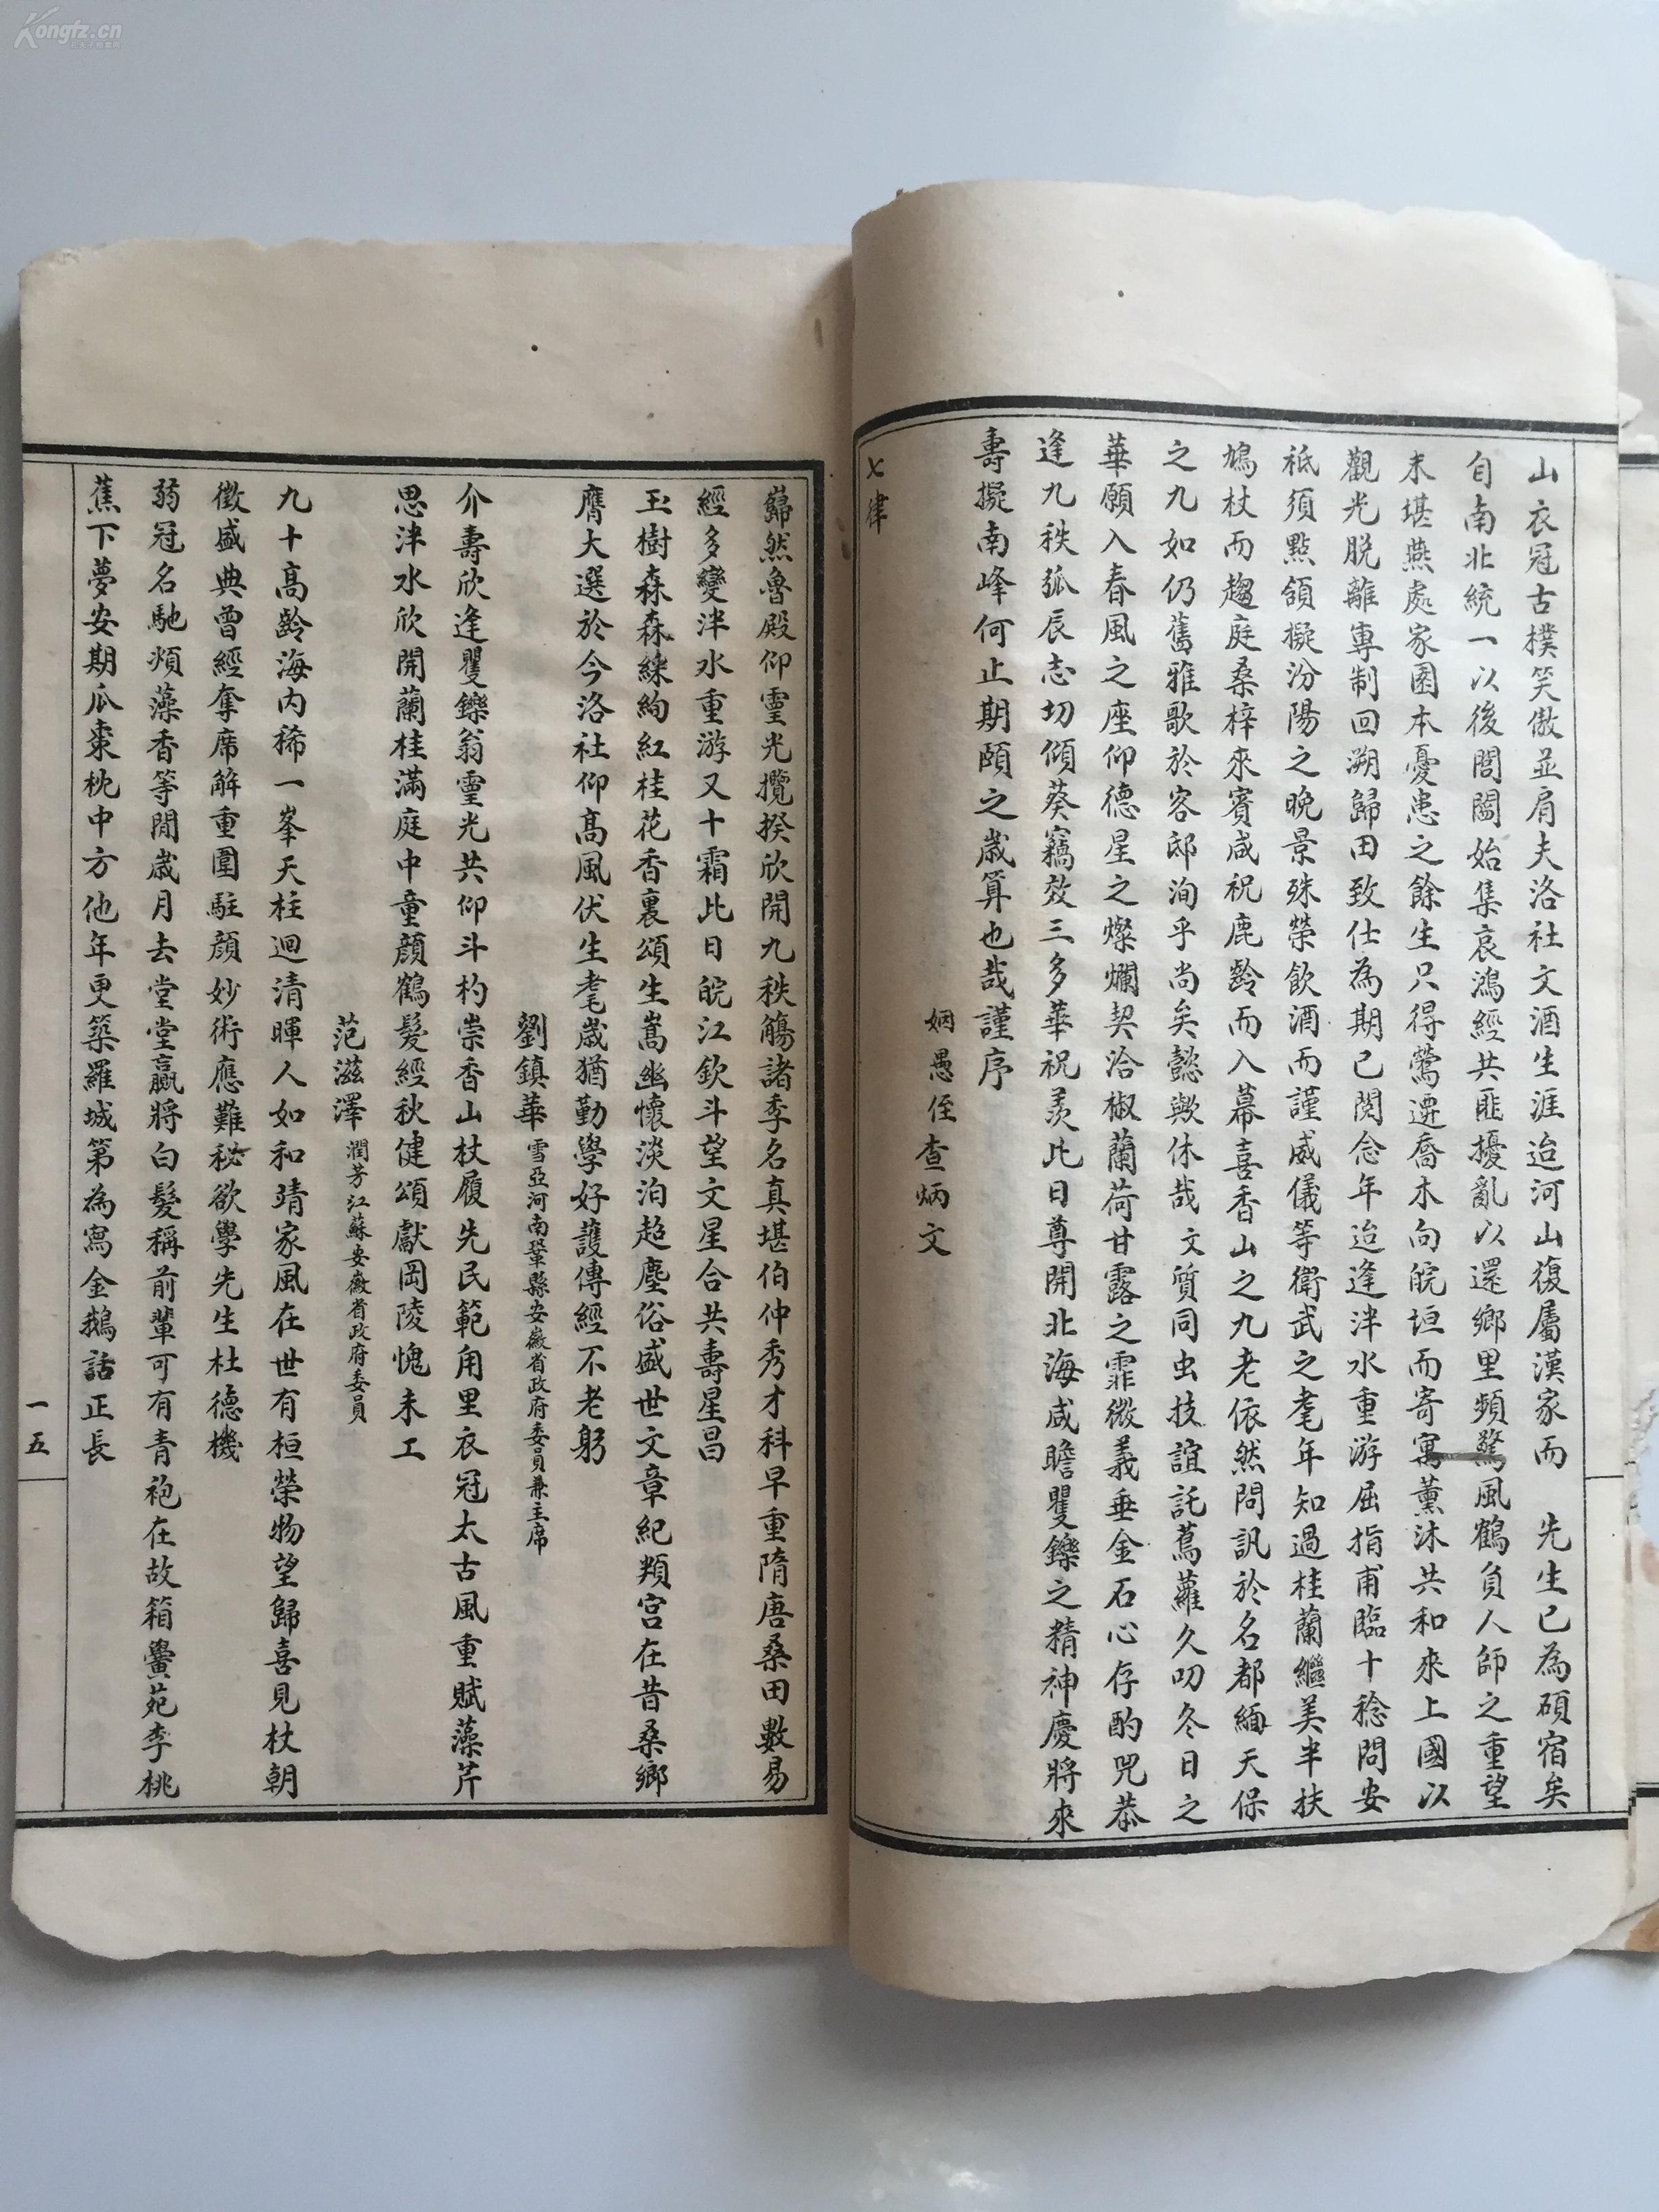 山衣冠古樸笑傲並肩夫洛社文酒生涯迨河山復屬漢家而 先生已為碩宿矣
自南北統一以後閭閻始集哀鴻經共匪擾亂以還鄉里頻驚風鶴負人師之重望
未堪燕處家園本憂患之餘生只得鶯遷喬木向皖垣而寄寓薰沐共和來上國以
觀光脫離專制回溯歸田致仕為期已閱念年迨逢泮水重游屈指甫臨十稔問安
祇須點頷擬汾陽之晚景殊榮飲酒而謹威儀等衛武之耄年知過桂蘭繼美半扶
鳩杖而趨庭桑梓來賓咸祝鹿齡而入幕喜香山之九老依然問訊於名都緬天保
之九如仍舊雅歌於客邸洵乎尚矣懿歟休哉文質同虫技誼託蔦蘿久叨冬日之
華願入春風之座仰德星之燦爛契洽椒蘭荷甘露之霏微義垂金石心存酌兕恭
逢九秩弧辰志切傾葵竊效三多華祝羨比日尊開北海咸瞻矍鑠之精神慶將來
壽擬南峰何止期頤之歲算也哉謹序
姻愚侄查炳文
七律
巋然魯殿仰靈光攬揆欣開九秩觴諸季名真堪伯仲秀才科早重隋唐桑田數易
經多變泮水重游又十霜比日皖江欽斗望文星合共壽星昌
玉樹森森綵絢紅桂花香裏頌生嵩幽懷淡泊超塵俗盛世文章紀類宮在昔桑鄉
膺大選於今洛社仰高風伏生耄歲猶勤學好護傳經不老躬
劉鎮華 雪亞河南鞏縣安徽省政府委員兼主席
介壽欣逢矍鑠翁靈光共仰斗杓崇香山杖履先民範甪里衣冠太古風重賦藻芹
思泮水欣開蘭桂滿庭中童顏鶴髮經秋健頌獻岡陵愧未工
范滋澤 潤芳江蘇安徽省政府委員
九十高齡海內稀一峯天柱迴清暉人如和靖家風在世有桓榮物望歸喜見杖朝
徵盛典曾經奪席解重圍駐顏妙術應難秘欲學先生杜德機
弱冠名馳頖藻香等閒歲月去堂堂贏將白髮稱前輩可有青袍在故箱黌苑李桃
蕉下夢安期瓜棗枕中方他年更築羅城第為寫金鵝話正長
一五
Kongfz.cn